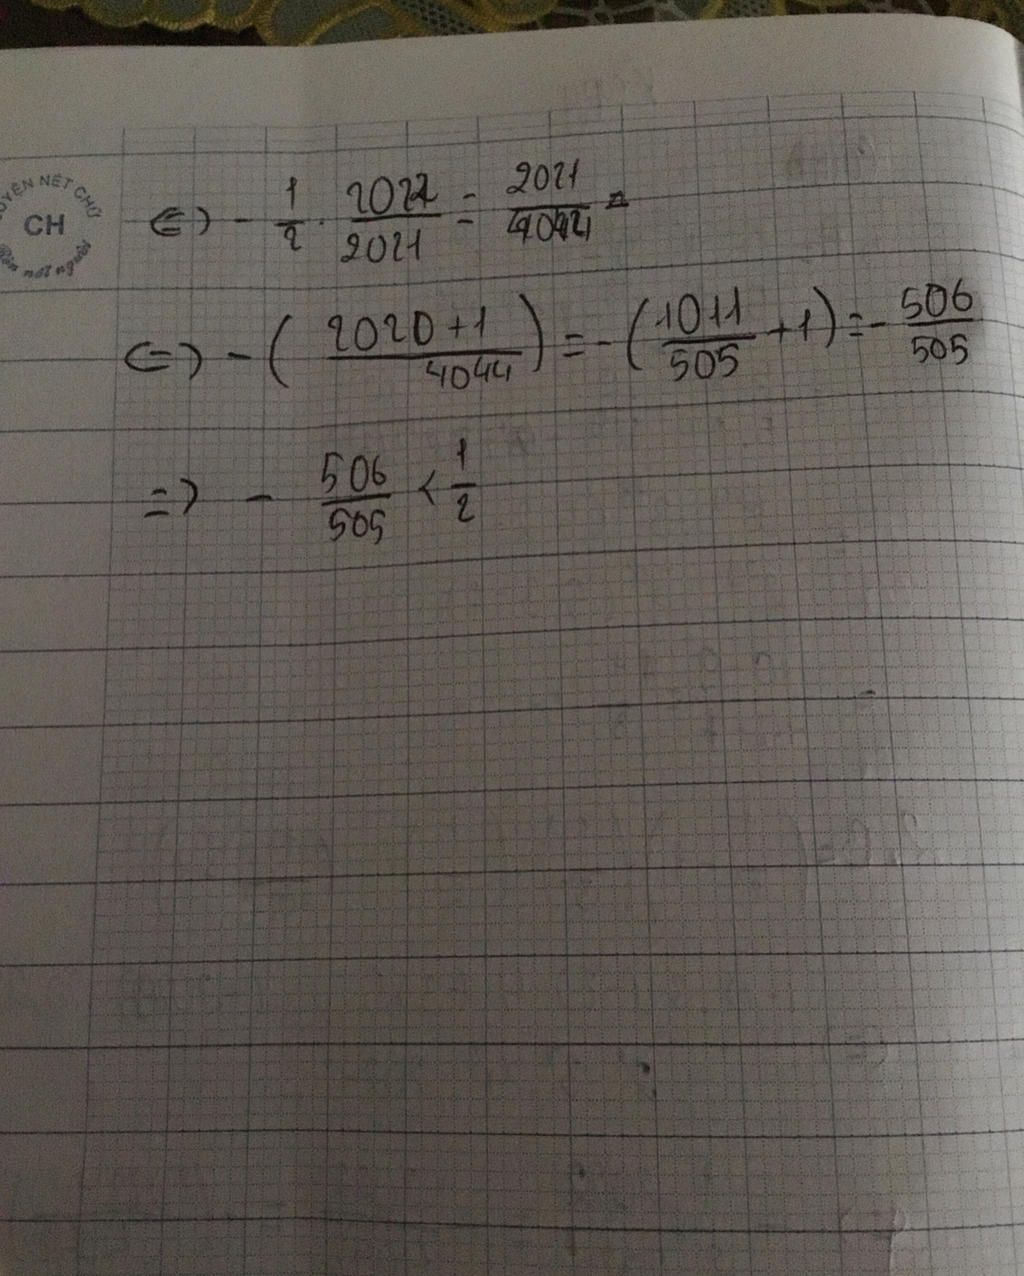 UYỆN NÉT CHỮ
CH
nét người
⇔ - 1/2 · 2022/2021 = 2021/4042 =
⇔ - ( 2020+1 / 4044 ) = - ( 1011/505 + 1 ) = - 506/505
⇒ - 506/505 < 1/2